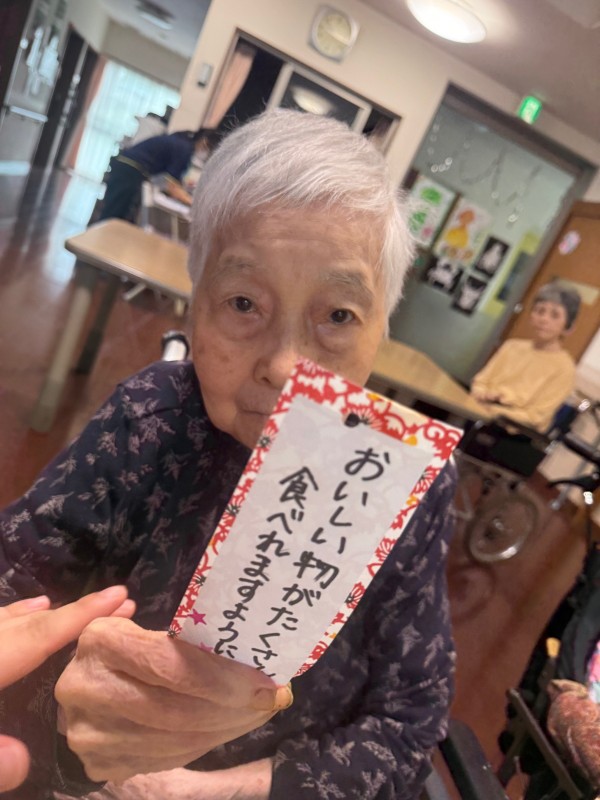 おいしい物がたくさん
食べれますように